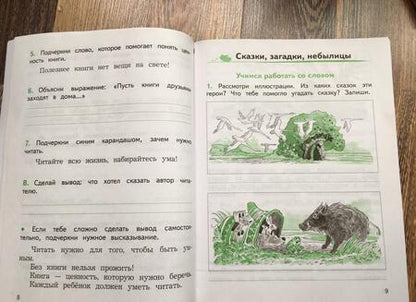 5. Подчеркни слово, которое помогает понять цен-
ность книги.
Полезнее книги нет вещи на свете!
6. Объясни выражение: «Пусть книги друзьями
заходят в дома...»
7. Подчеркни синим карандашом, зачем нужно
читать.
Читайте всю жизнь, набирайтесь ума!
8. Сделай вывод: что хотел сказать автор чита-
телю.
* Если тебе сложно сделать вывод самостоя-
тельно, подчеркни нужное высказывание.
Читать нужно для того, чтобы быть ум-
ным.
Без книги нельзя прожить!
Книга — ценность, которую нужно беречь.
Каждый ребёнок должен уметь читать.
8
Сказки, загадки, небылицы
Учимся работать со словом
1. Рассмотри иллюстрации. Из каких сказок эти
герои? Что тебе помогло угадать сказку? Запиши.
9